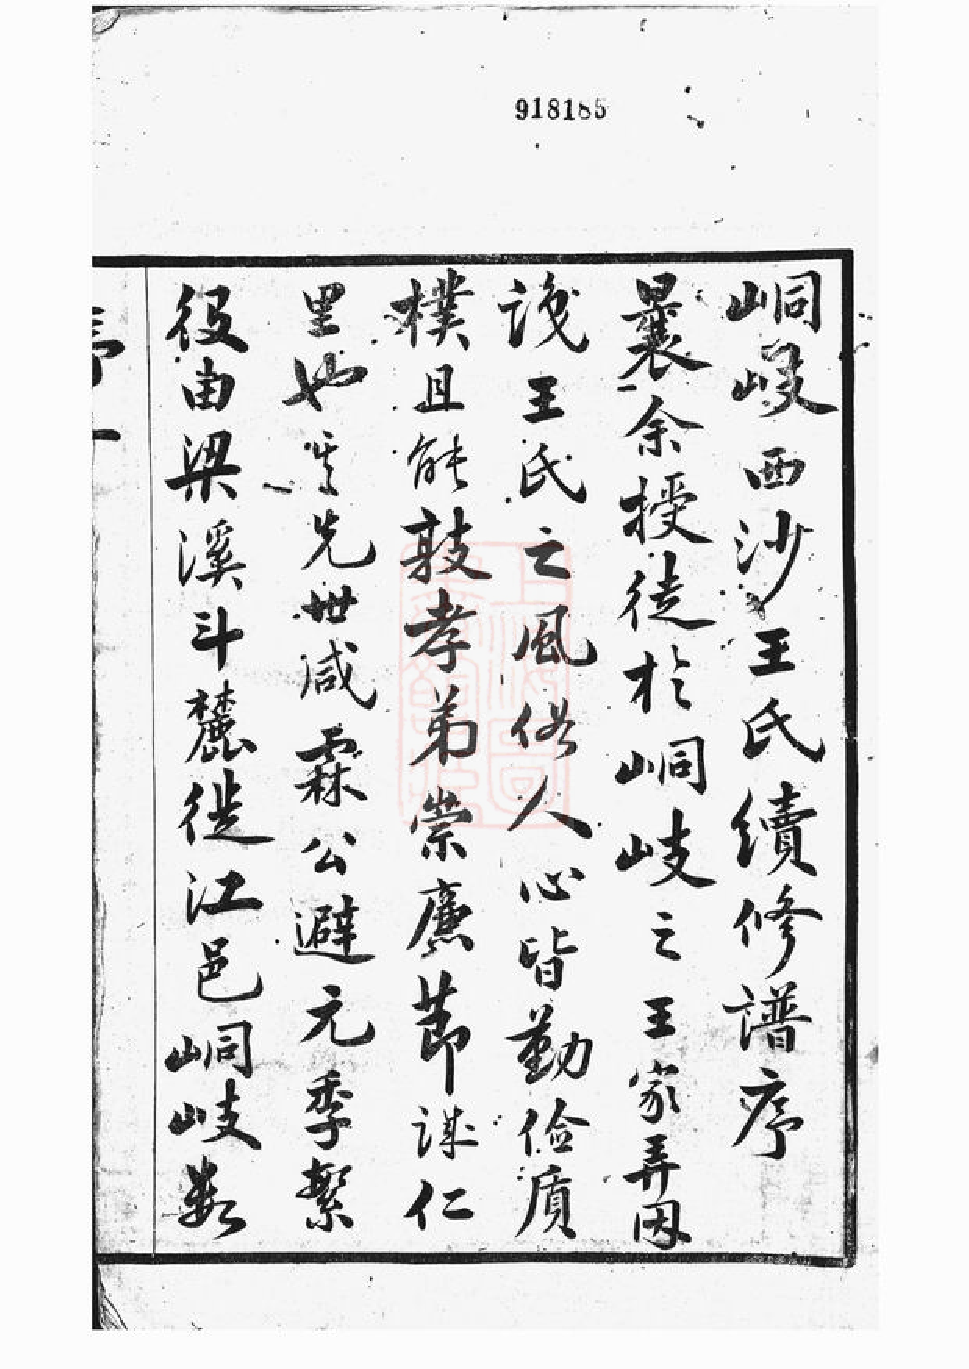 918185
峒岐西沙王氏續修譜序
曩余授徒於峒岐之王家弄因
識王氏之風俗人心皆勤儉質
樸且能敦孝弟崇廉節誠仁
里也其先世咸霖公避元季繫
役由梁溪斗麓徙江邑峒岐數
序
一